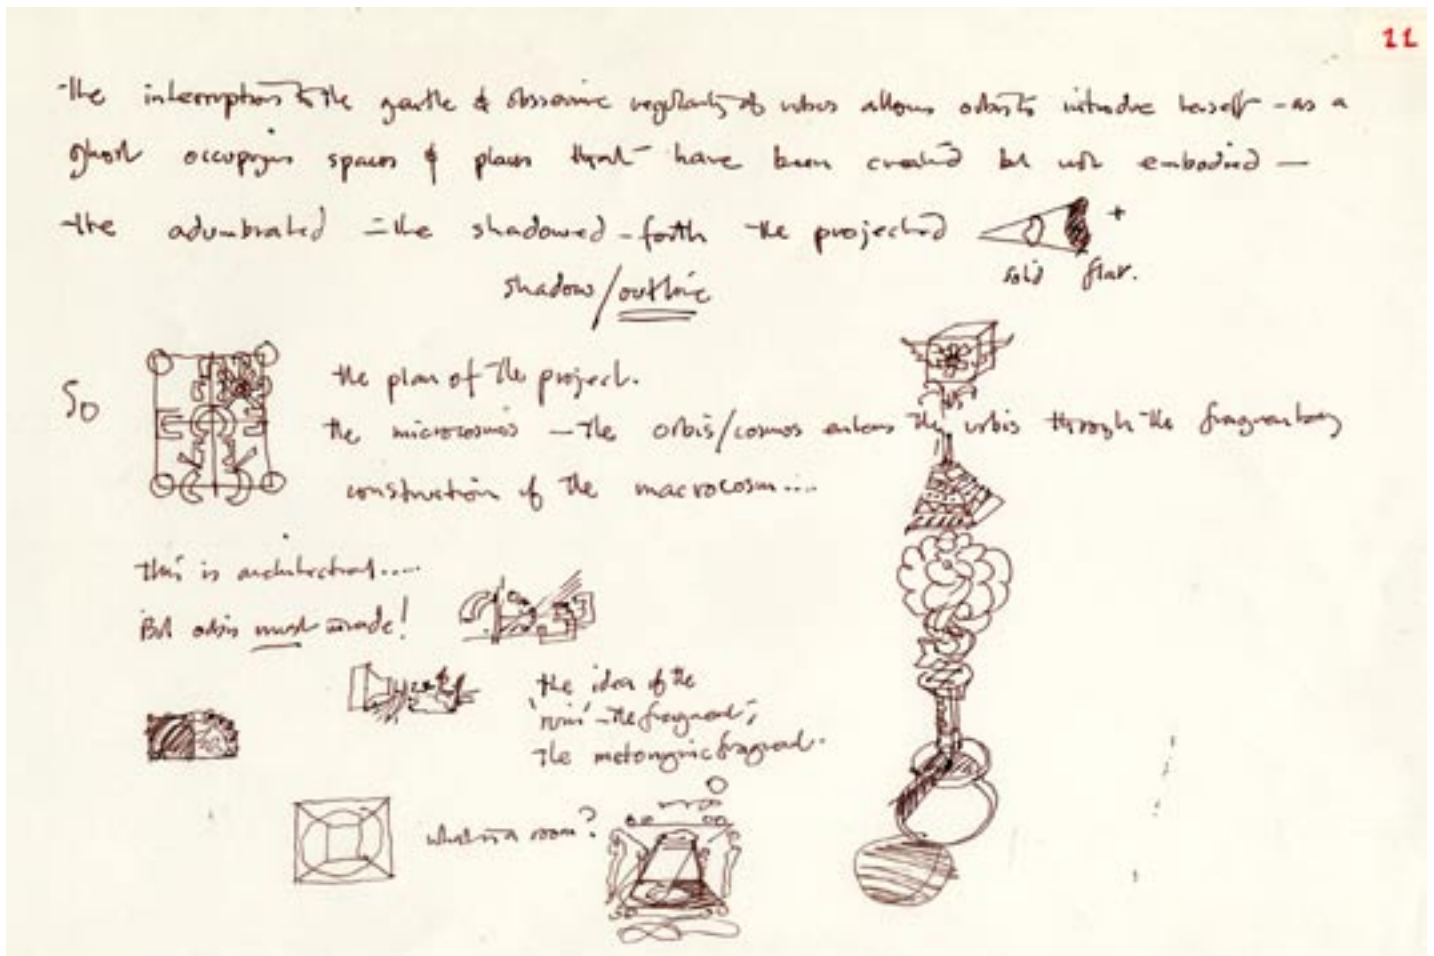 11
the interruption to the gentle & obsessive regularity of urbis allows orbis to introduce herself - as a
ghost occupying spaces & places that have been created but not embodied —
the adumbrated = the shadowed-forth the projected +
solid flat.
shadow/outline
So
the plan of the project.
the microcosmos — the orbis/cosmos enters the urbis through the fragmentary
construction of the macrocosm....
this is architectural....
But orbis must invade!
the idea of the
'ruin' - the fragment,
the metonymic fragment.
what is a room?